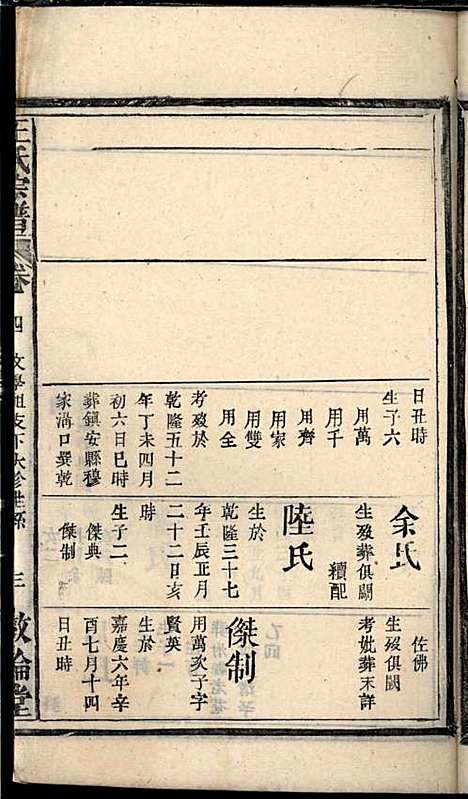 日丑時
生子六
用萬
用千
用齊
用家
用雙
用全
考歿於
乾隆五十二
年丁未四月
初六日巳時
葬鎮安縣穆
家溝口巽乾
余氏
生歿葬俱闕
續配
陸氏
生於
乾隆三十七
年壬辰正月
二十二日亥
時
生子二
傑典
傑制
佐佛
生歿俱闕
考妣葬未詳
傑制
用萬次子字
賢英
生於
嘉慶六年辛
酉七月十四
日丑時
王氏宗譜
卷四
文學祖支下大珍世系
三
敦倫堂